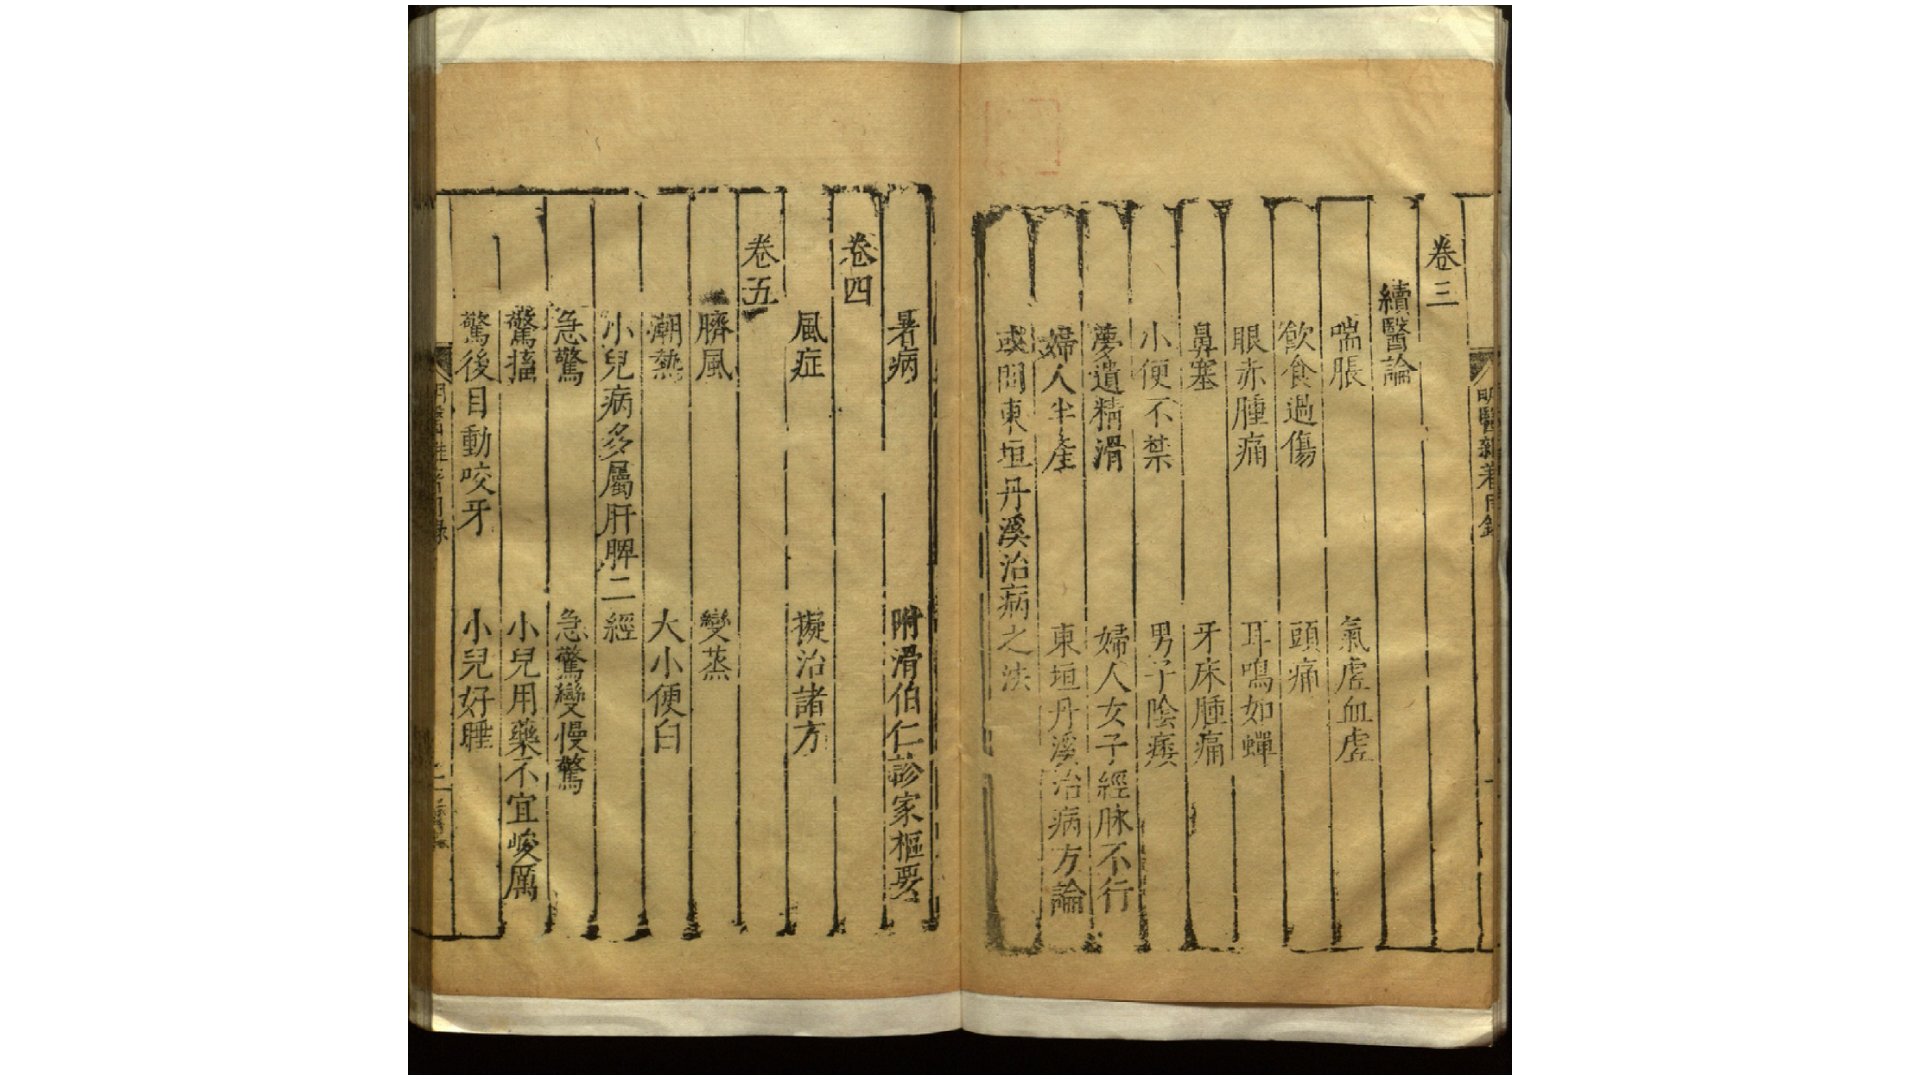 明醫雜著目錄
卷三
續醫論
喘脹 氣虛血虛
飲食過傷 頭痛
眼赤腫痛 耳鳴如蟬
鼻塞 牙床腫痛
小便不禁 男子陰痿
夢遺精滑 婦人女子經脉不行
婦人半產 東垣丹溪治病方論
或問東垣丹溪治病之法
暑病 附滑伯仁診家樞要
卷四
風症 擬治諸方
卷五
臍風 變蒸
潮熱 大小便白
小兒病多屬肝脾二經
急驚 急驚變慢驚
驚搐 小兒用藥不宜峻厲
驚後目動咬牙 小兒好睡
明醫雜著目錄
二